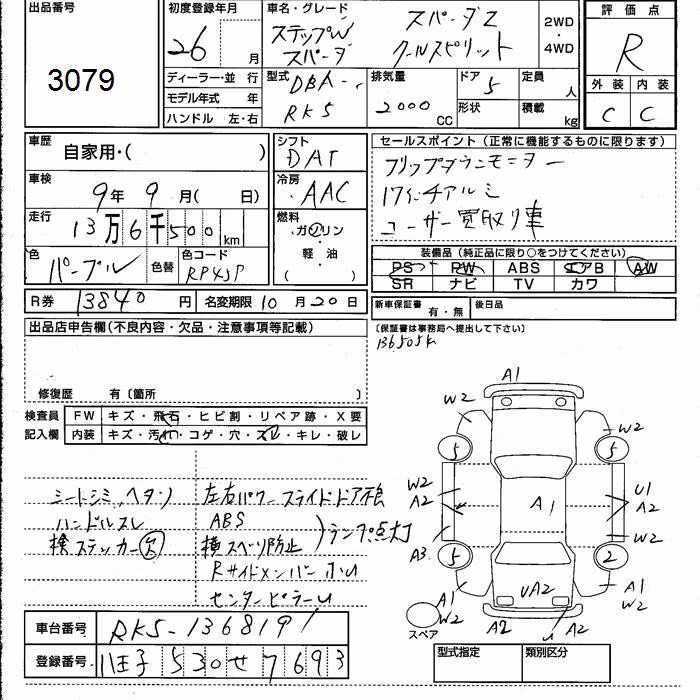 出品番号
3079
初度登録年月
26 月
車名・グレード
ステップW スパーダZ
スパーダ クールスピリット
2WD
・
4WD
評価点
R
外装 内装
C C
ディーラー・並行
モデル年式 年
ハンドル 左・右
型式 DBA-
RK5
排気量
2000 CC
ドア 5
形状
定員 人
積載 kg
車歴
自家用・( )
車検
9年9月(日)
走行
13万6千500km
色
パープル
色替
色コード
RP45P
シフト
DAT
冷房
AAC
燃料
ガソリン
・
軽油
( )
セールスポイント(正常に機能するものに限ります)
フリップダウンモニター
17インチアルミ
ユーザー買取り車
装備品(純正品に限り○をつけてください)
PS PW ABS エアB AW
SR ナビ TV カワ
R券 13840円 名変期限 10月20日
新車保証書 有・無 後日品
(保証書は事務局へ提出して下さい)
136505K
出品店申告欄(不良内容・欠品・注意事項等記載)
修復歴 有〔箇所 〕
検査員 FW キズ・飛石・ヒビ割・リペア跡・X要
記入欄 内装 キズ・汚れ・コゲ・穴・スレ・キレ・破レ
シートシミ、ヘタリ 左右パワースライドドア不良
ハンドルスレ ABS
検ステッカー欠 横スベリ防止 )ランプ点灯
Rサイドメンバー
センターピラー
車台番号 RK5-1368191
登録番号 八王子 530 せ 7693
A1
W2 W2
5 5
W2 A2 A1 U1 A2
W2
A3
5 2
A1 W2 UA2 A1 W2
スペア A2 u A2
型式指定 類別区分